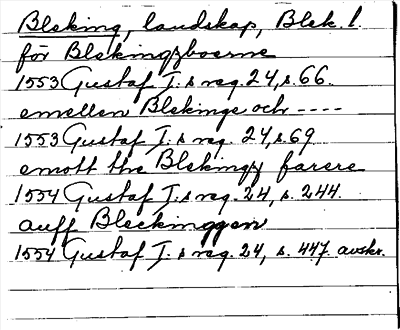 Bleking, landskap, Blek. l.
för Blekingzboerne
1553 Gustaf I:s reg. 24, s. 66.
emellen Blekinge och ----
1553 Gustaf I:s reg. 24, s. 69
emott the Blekingz farere
1554 Gustaf I:s reg. 24, s. 244.
auff Bleckinggen
1554 Gustaf I:s reg. 24, s. 447. avskr.